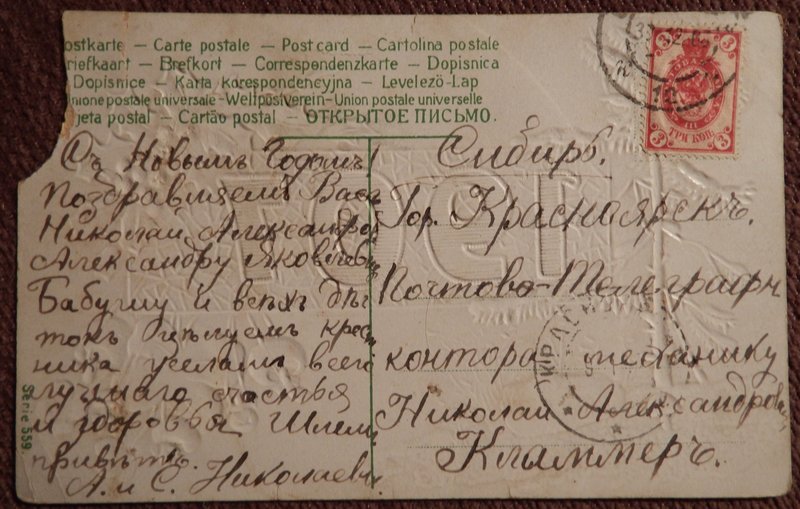 ostkarte — Carte postale — Post card — Cartolina postale
riefkaart — Brefkort — Correspondenzkarte — Dopisnica
Dopisnice — Karta korespondencyjna — Levelező-Lap
nione postale universale - Weltpostverein - Union postale universelle
jeta postal — Cartão postal — ОТКРЫТОЕ ПИСЬМО.
Съ Новымъ Годомъ!
Поздравляемъ Васъ
Николай Александро
Александру Яковлевну
Бабушку и всѣхъ дѣ
токъ цѣлуемъ крес
ника желаемъ всего
лучшаго счастья
и здоровья Шлемъ
привѣтъ.
А. и С. Николаевы
Сибирь.
Гор. Красноярскъ.
Почтово-Телеграфн
контора механику
Николай Александрови
Кламмеръ.
3 3
3 3
ТРИ КОП.
12
Serie 559